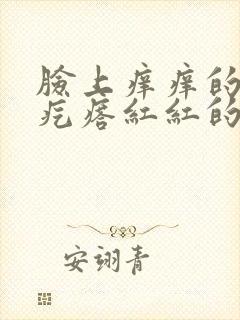 臉上痒痒的
疙瘩紅紅的
安翊青